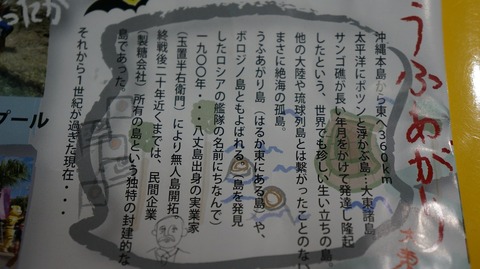 うふあがり
沖縄本島から東へ360km
太平洋にポツンと浮かぶ島・大東諸島
サンゴ礁が長い年月をかけて発達し隆起
したという、世界でも珍しい生い立ちの島。
他の大陸や琉球列島とは繋がったことのない
まさに絶海の孤島。
うふあがり島（はるか東にある島）や、
ボロジノ島ともよばれる（島を発見
したロシアの艦隊の名前にちなんで）
一九〇〇年・・八丈島出身の実業家
（玉置半右衛門）により無人島開拓。
終戦後二十年近くまでは、民間企業
（製糖会社）所有の島という独特の封建的な
島であった。
それから１世紀が過ぎた現在・・・
ったか
プール